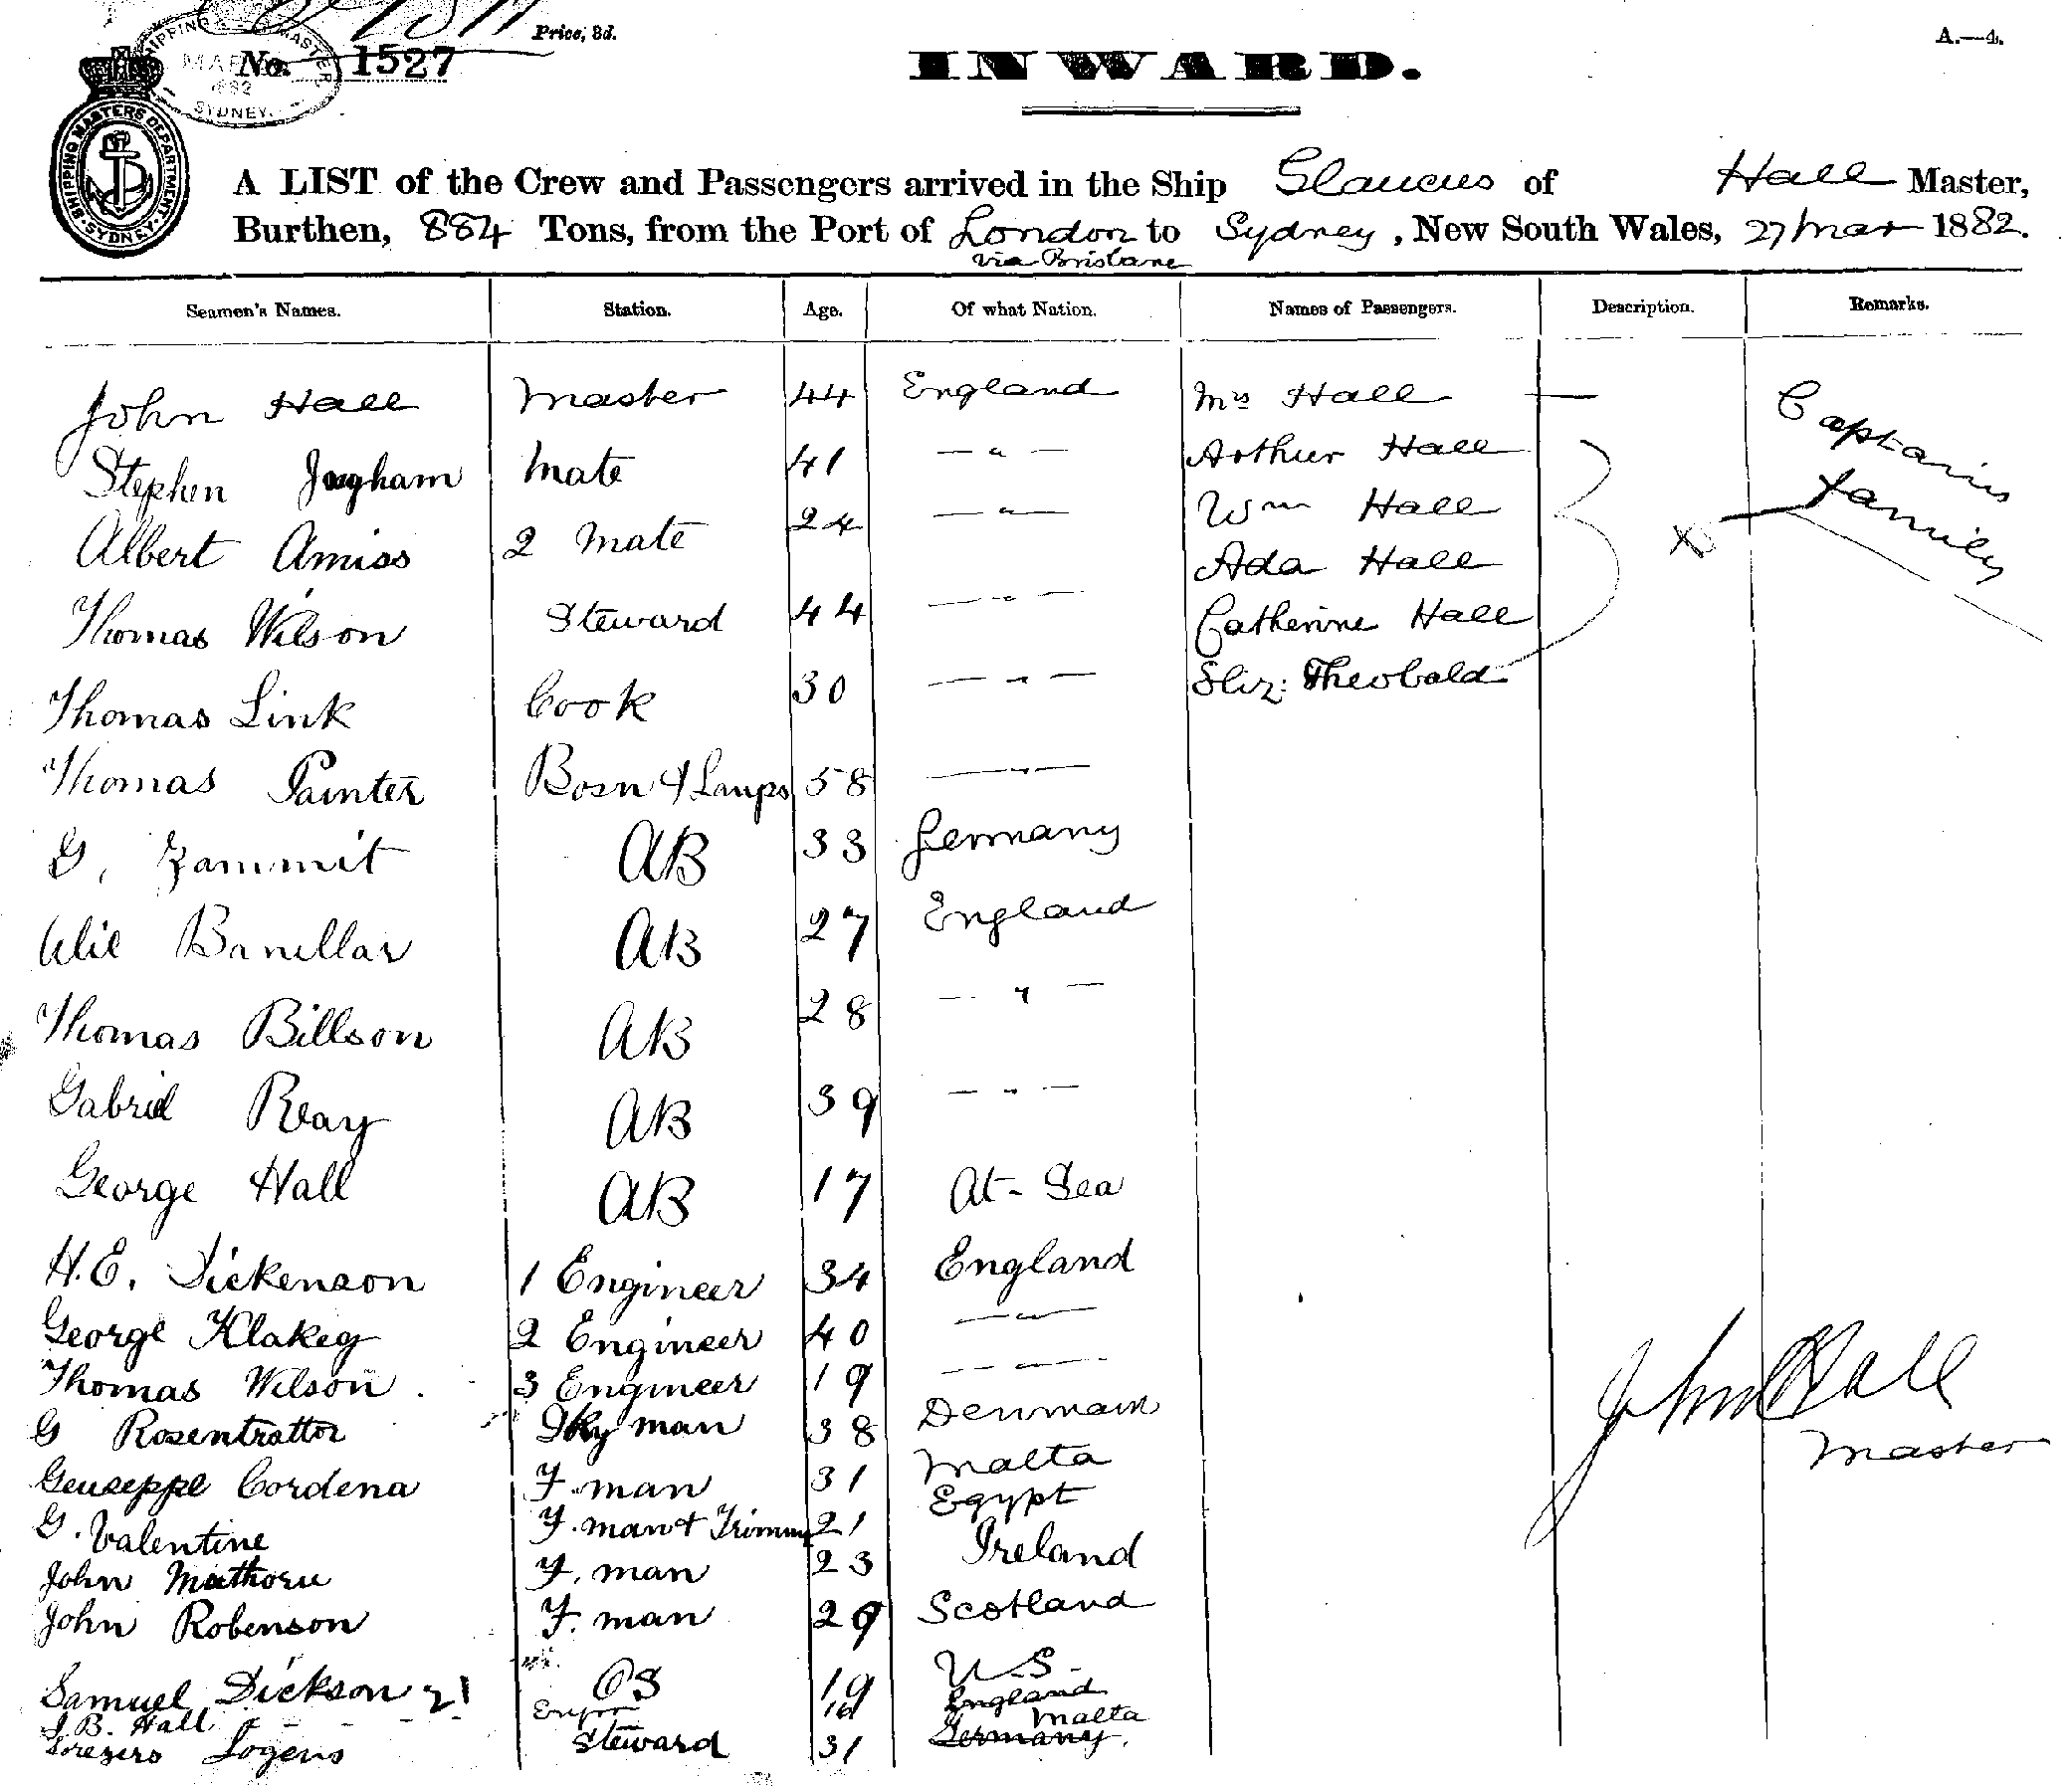 Price, 3d.
A.—4.
No. 1527
INWARD.
SHIPPING MASTER
MAR
1882
SYDNEY.
SHIPPING MASTERS DEPARTMENT
SYDNEY
A LIST of the Crew and Passengers arrived in the Ship Glaucus of Hall Master,
Burthen, 884 Tons, from the Port of London to Sydney, New South Wales, 27 Mar 1882.
via Brisbane
Seamen's Names. Station. Age. Of what Nation. Names of Passengers. Description. Remarks.
John Hall Master 44 England Mrs Hall — Captains
Stephen Ingham Mate 41 — " — Arthur Hall
Albert Amiss 2 Mate 24 — " — Wm Hall x family
Ada Hall
Thomas Wilson Steward 44 — " — Catherine Hall
Thomas Link Cook 30 — " — Eliz: Theobald
Thomas Painter Bosn & Lamps 58 — " —
G. Zammit AB 33 Germany
AB 27 England
Thomas Billson AB 28 — " —
Gabriel Reay AB 39 — " —
George Hall AB 17 At-Sea
H.E. Dickenson 1 Engineer 34 England
George Klakeg 2 Engineer 40 — " —
Thomas Wilson. 3 Engineer 19 — " — John Hall
G Rosentrattor man 38 Denmark Master
Geuseppe Cordena F. man 31 Malta
G. Valentine F. man & Trimmer 21 Egypt
John F. man 23 Ireland
John Robenson F. man 29 Scotland
Samuel Dickson 21 OS 19 U-S-
J.B. Hall England
Logens Steward 31 Germany. Malta